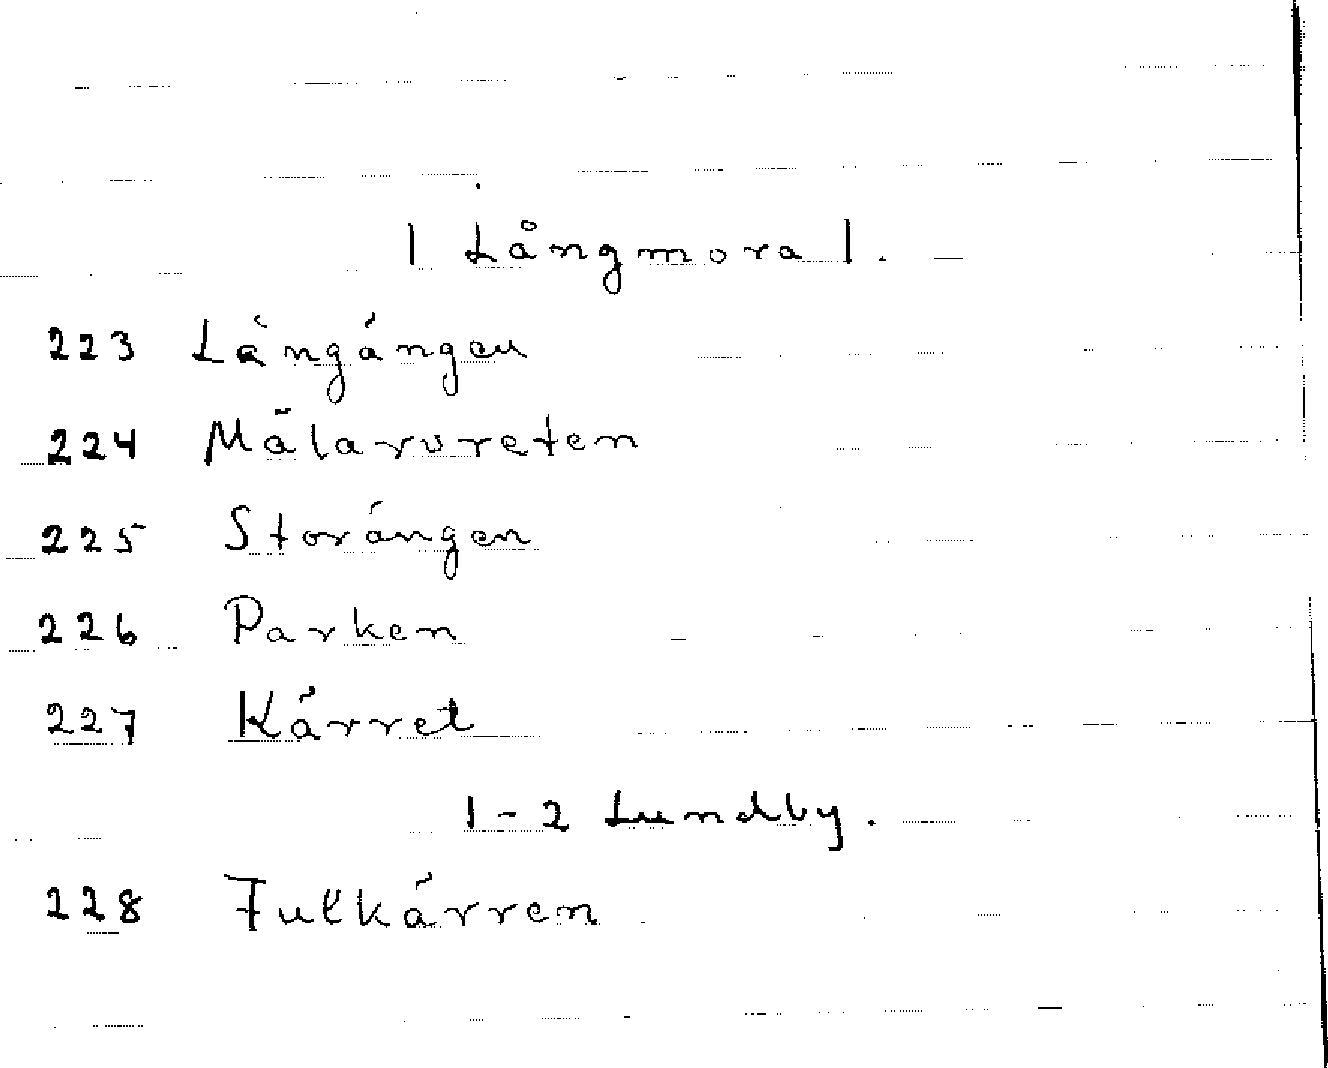 1 Långmora 1.
223 Långängen
224 Mälarvreten
225 Storängen
226 Parken
227 Kärret
1-2 Lundby.
228 Fulkärren